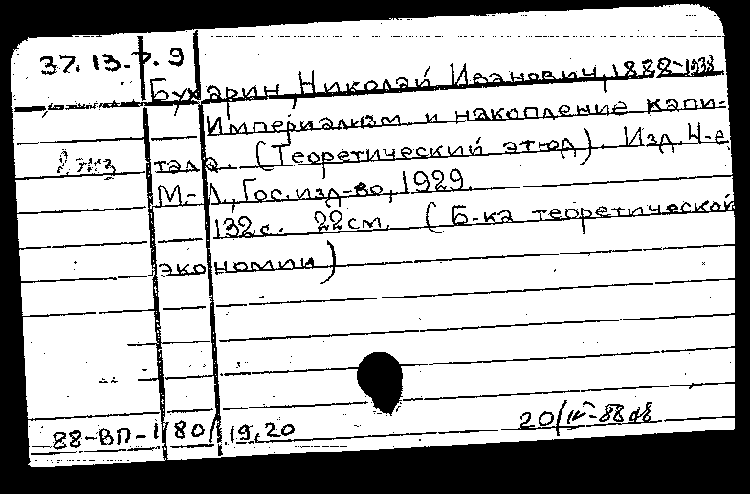 37.13.7.9
Бухарин, Николай Иванович, 1888-1938
Империализм и накопление капи-
2 экз тала. (Теоретический этюд). Изд. 4-е
М-Л, Гос. изд-во, 1929.
132с. 22см. (Б-ка теоретической
экономии)
88-ВП-1/80/ 19,20
20/IV-88